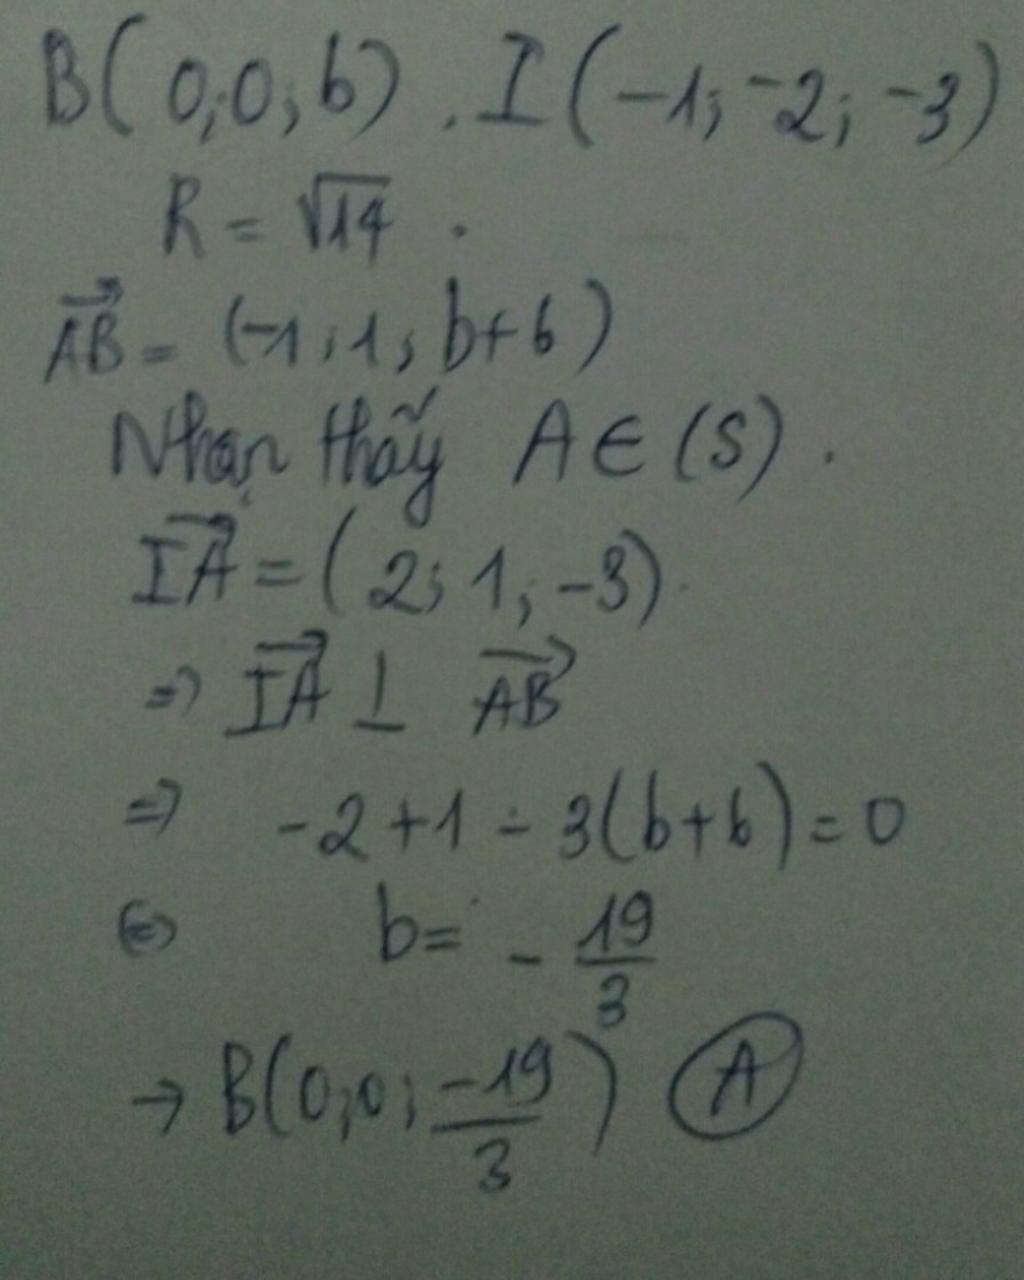 B(0;0;b). I(-1;-2;-3)
R = √14.
AB→ = (-1;1; b+6)
Nhận thấy A ∈ (S).
IA→ = (2; 1; -3).
=> IA→ ⊥ AB→
=> -2+1-3(b+6) = 0
<=> b = -19/3
→ B(0;0; -19/3) A